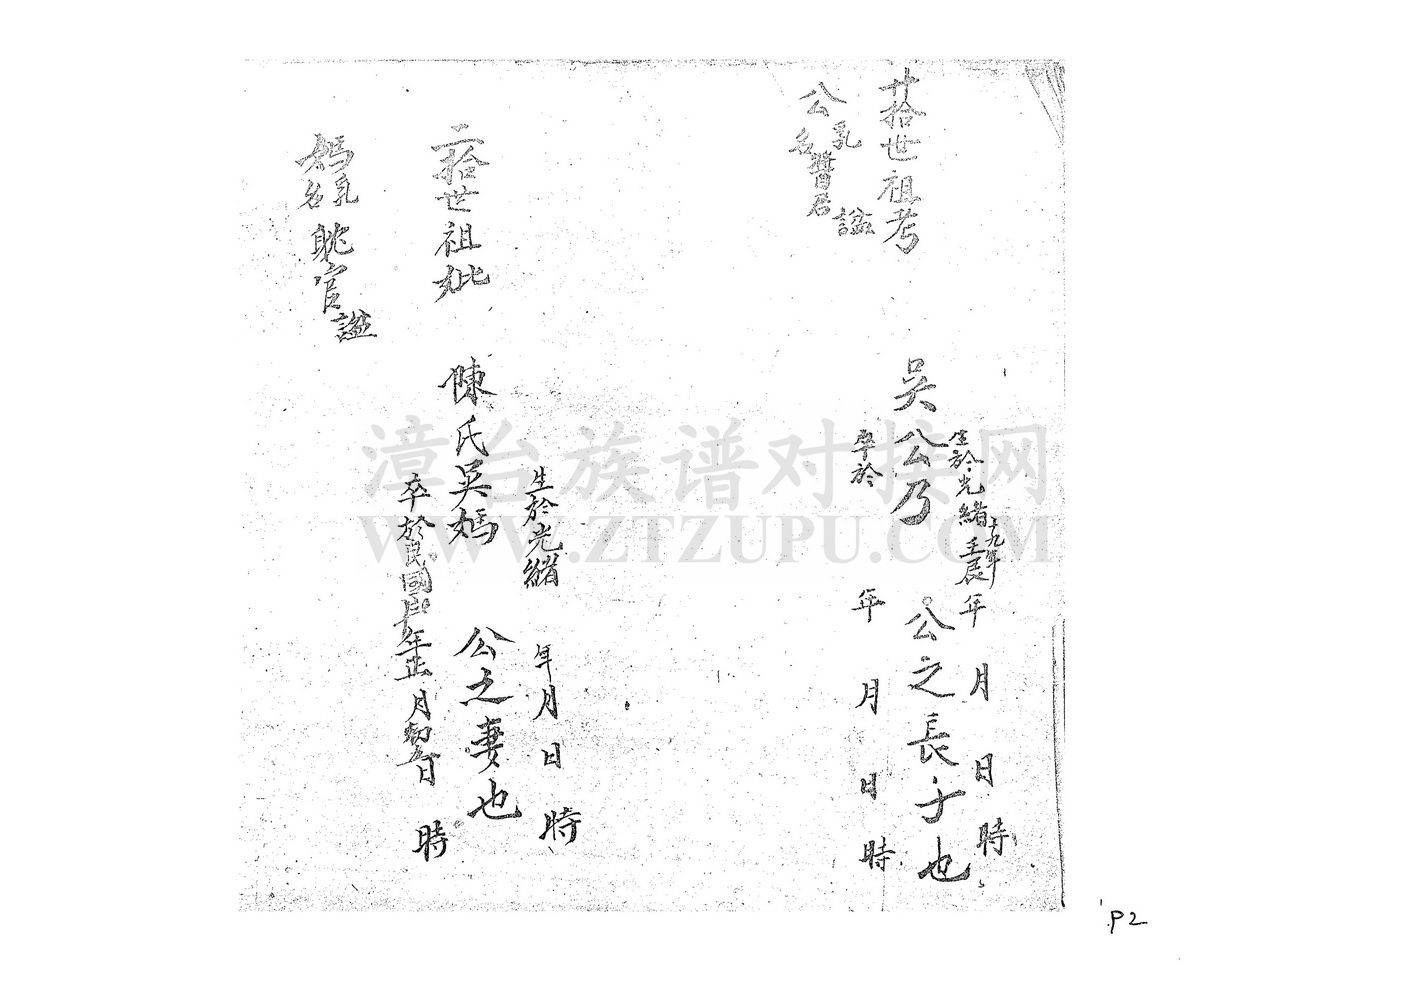 廿拾世祖考
公乳名醬君 諡
生於光緒十九年壬辰年 月 日 時
吳公乃 公之長子也
卒於 年 月 日 時
二拾世祖妣
媽乳名眺官諡
生於光緒 年 月 日 時
陳氏吳媽 公之妻也
卒於民國 年正月初 日 時
漳台族谱对接网
WWW.ZTZUPU.COM
P2